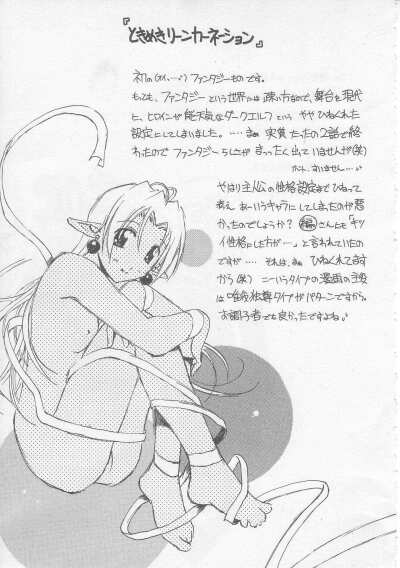 『ときめきリーンカーネーション』
初の(ハイ、…。)ファンタジーものです。
もっとも、ファンタジーという世界には疎い方なので、舞台を現代
に、ヒロインが能天気なダークエルフという ややひねくれた
設定にしてしまいました。……まぁ 実質 たったの2話で終
わったので ファンタジーらしさが まったく出ていませんが(笑)
ホント、すいません…。
やはり主人公の性格設定までひねって
あえ、あーいうキャラにしてしまったのが悪
かったのでしょうか? 編さんにも『キツ
イ性格にした方が…』と言われていたの
ですが…… それは、まぁ ひねくれてます
から(笑) こーいうタイプの漫画の主役
は 唯我独尊タイプがパターンですから。
お調子者でも良かったですよね。